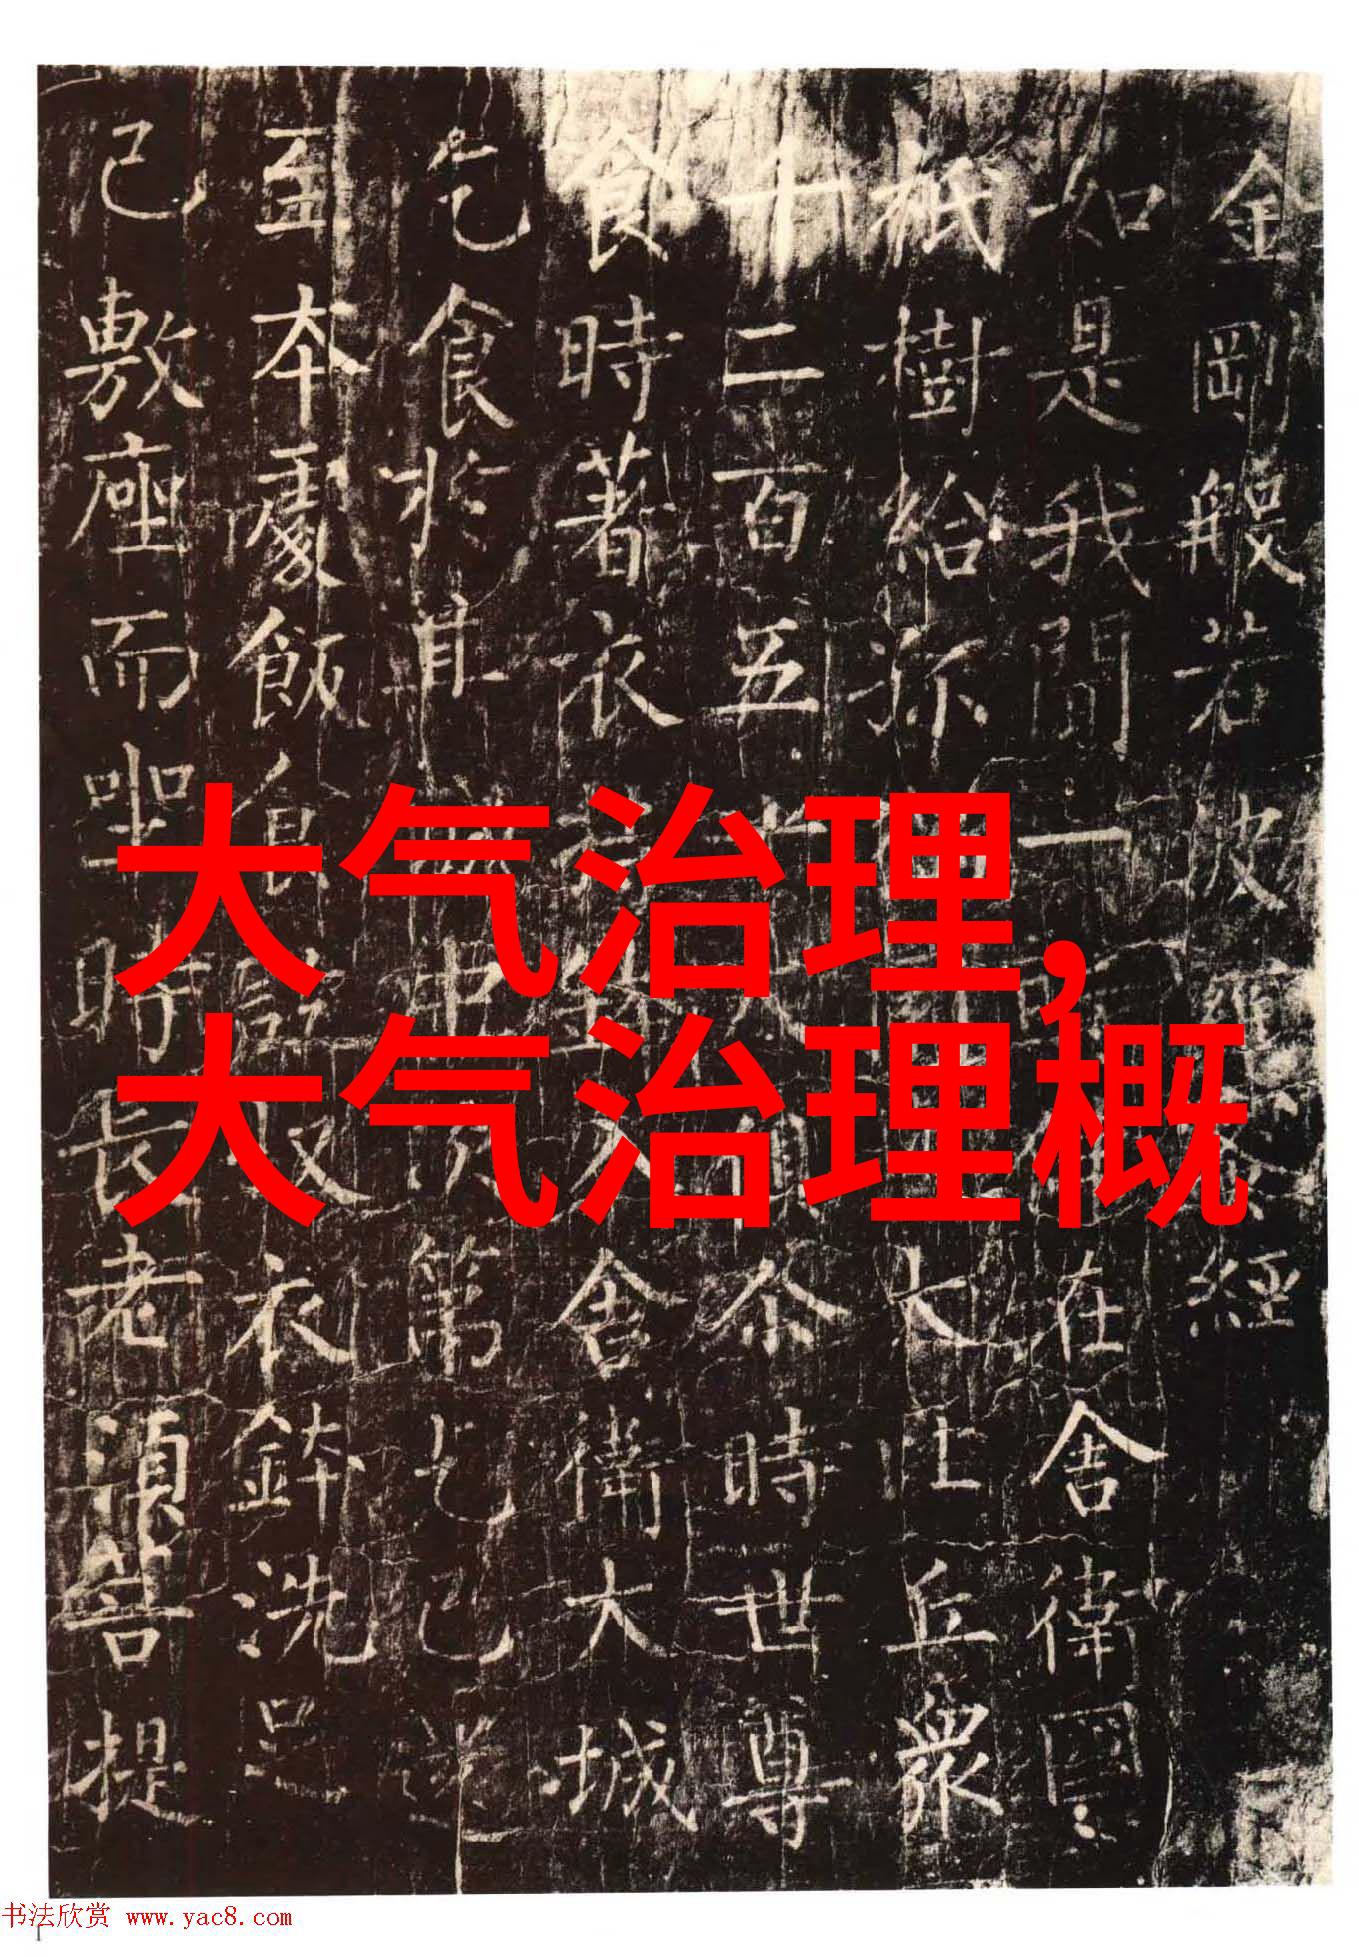 金剛般若波羅經
如是我聞一在舍衛國
祇樹給孤大比丘眾
千二百五十俱尒時世尊
食時著衣持入舍衛大城
乞食於其城中次第乞已還
至本處飯食訖收衣鉢洗足
已敷座而坐時長老須菩提
大气治理,
大气治理概
书法欣赏 www.yac8.com